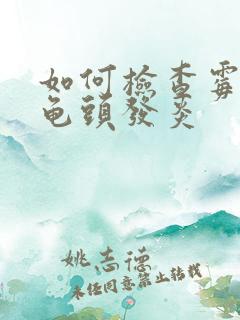 如何檢查霉
龜頭發炎
姚志德
未经同意禁止转载